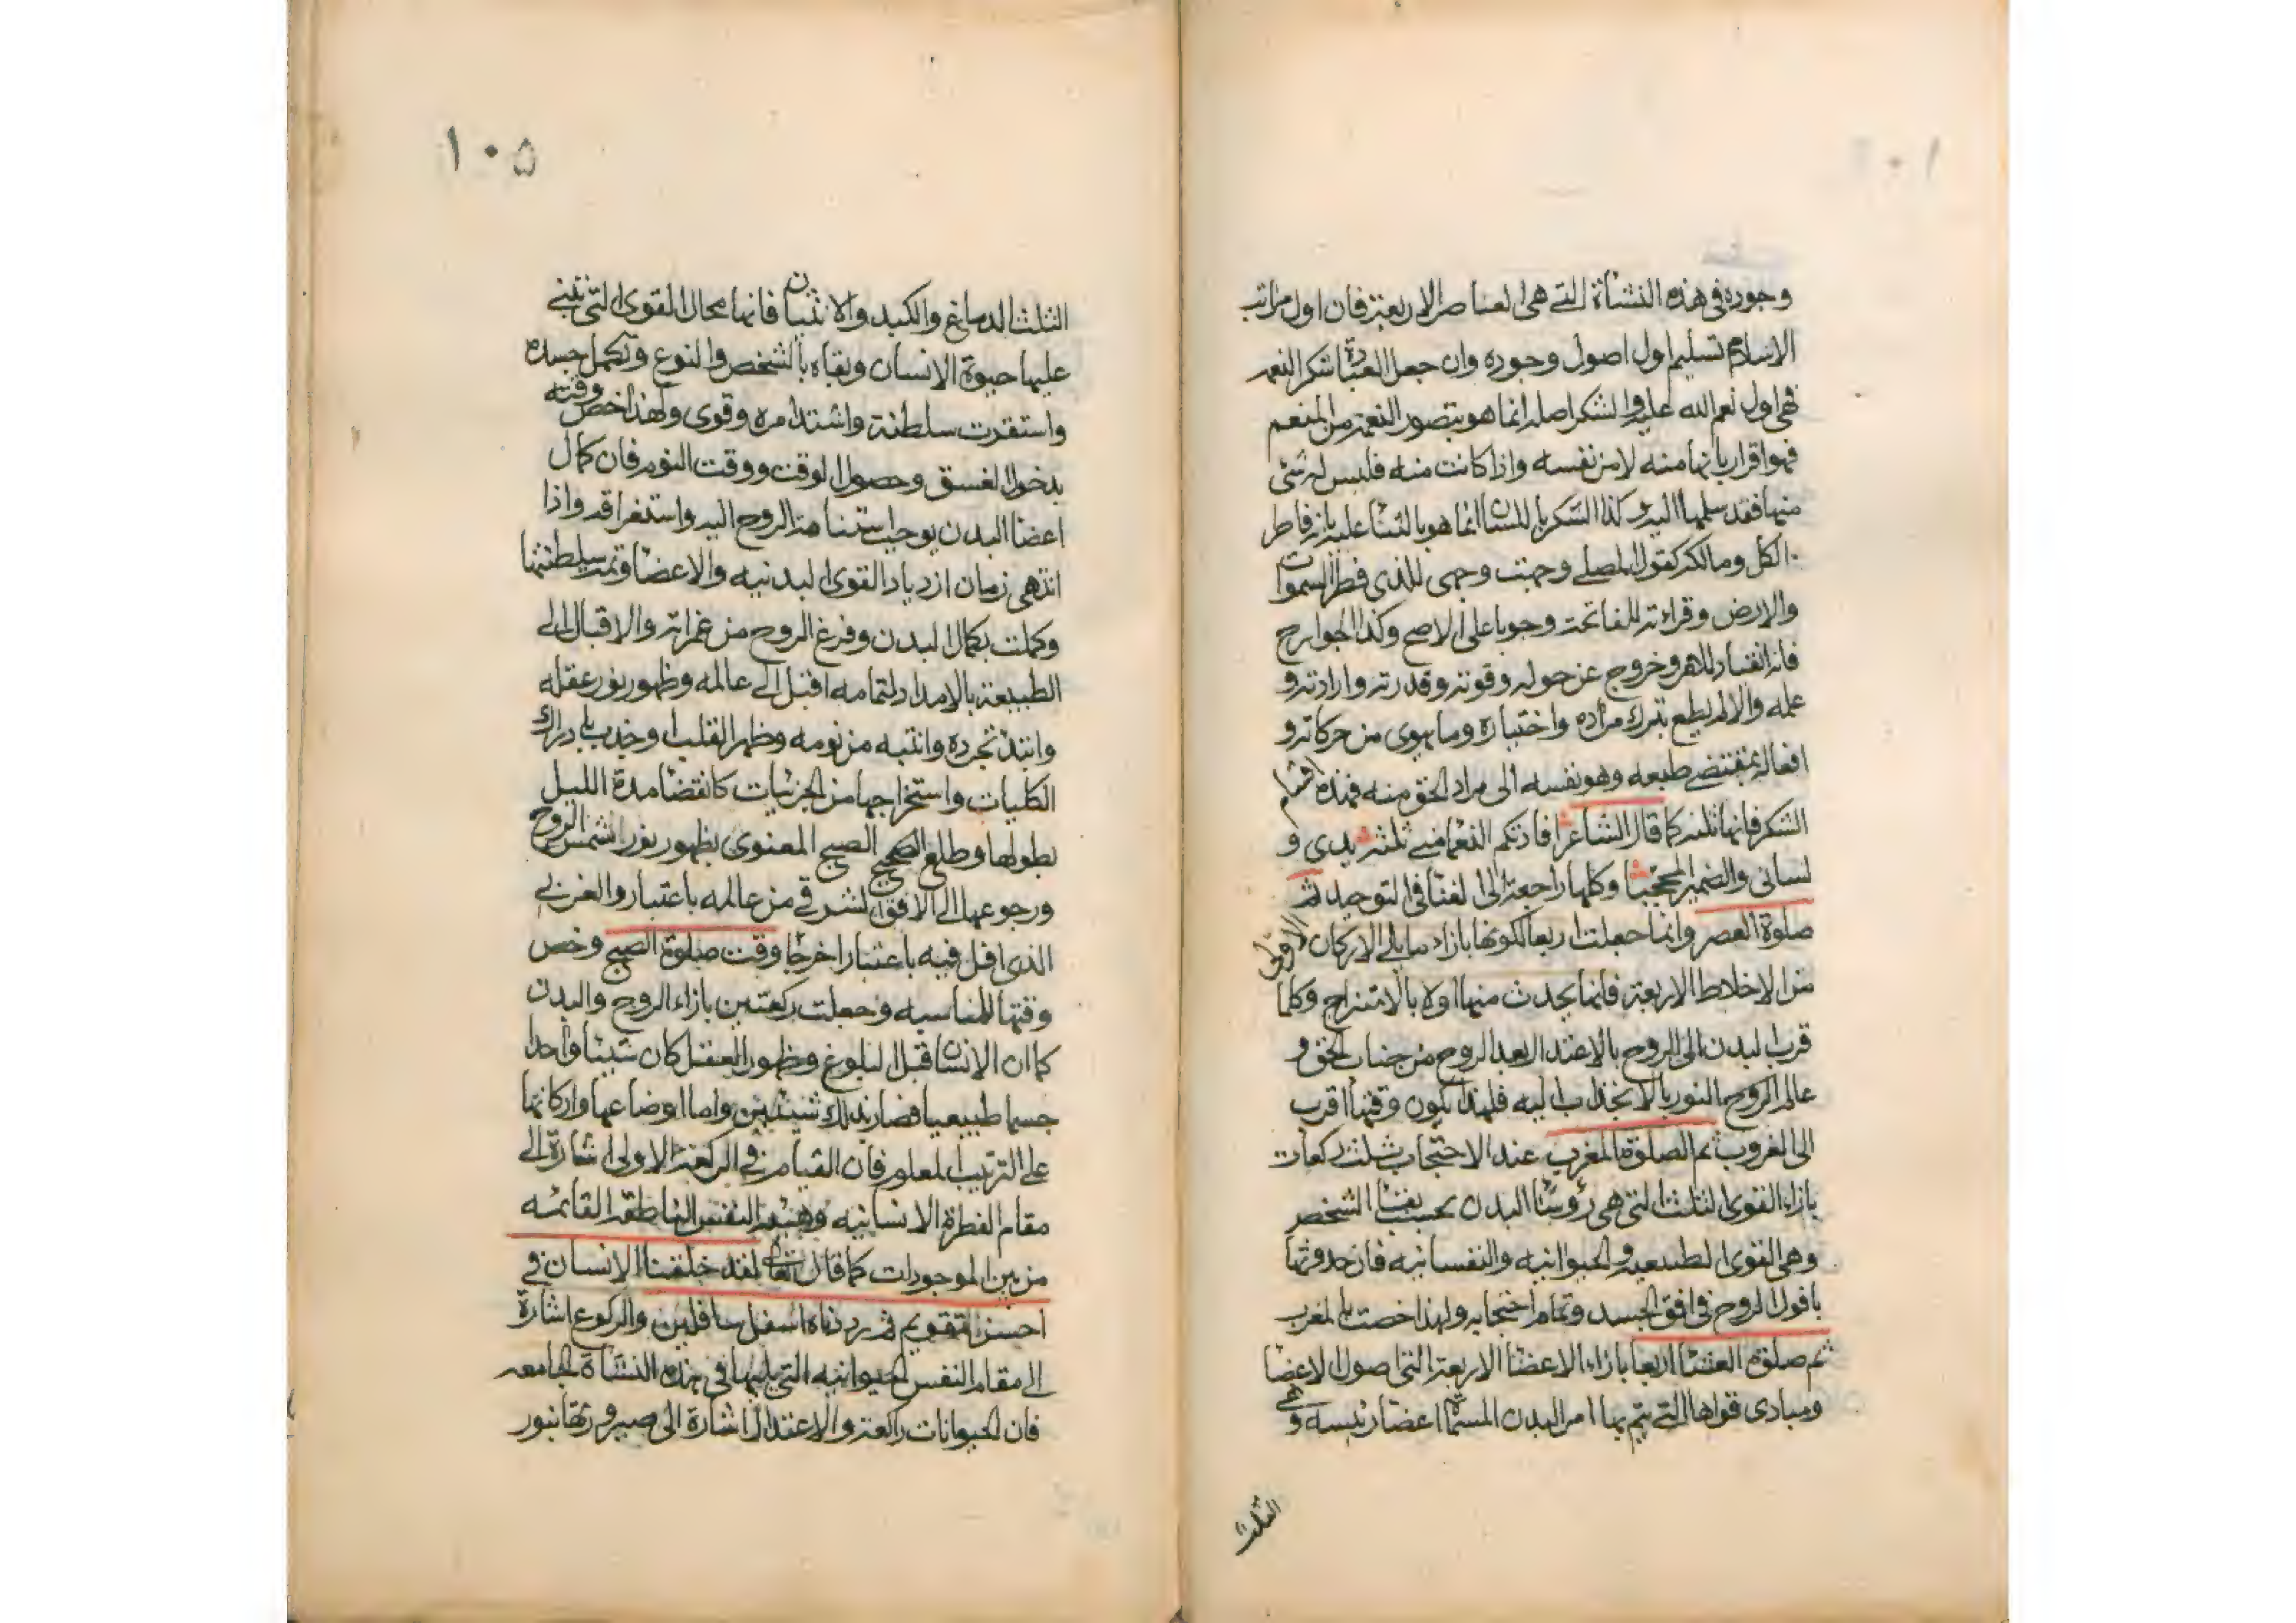 وجوده فى هذه النشأة التے هى العناصر الاربعة فان اول مراتب
الاسلام تسليم اول اصول وجوده وان جعل العبادة شكر النعم
فهى اول نعم الله عليه والشكر اصله انما هو بتصور النعمة من المنعم
فهو اقرار بانها منه لا من نفسه واذا كانت منه فليس له شئ
منها فقد سلمها اليه وكذا الشكر باللسان انما هو بالثناء عليه بانه فاطر
الكل ومالكه كقول المصلے وجهت وجهى للذى فطر السموات
والارض وقراءته للفاتحة وجوبا على الاصح وكذا الجوارح
فانه انقياد للامر وخروج عن حوله وقوته وقدرته وارادته و
علمه والا لم يطع بترك مراده واختياره وما يهوى من حركاته و
افعاله بمقتضے طبعه وهو نفسه الى مراد الحق منه فهذه اقسام
الشكر فانها ثلثه كما قال الشاعر افادتكم النعماء منے ثلثة يدى و
لسانى والضمير المحجبا وكلها راجعة الى الفنا فى التوحيد ثم
صلوة العصر وانما جعلت اربعا لكونها بازاء ما يلے الاركان الاولى
من الاخلاط الاربعة فانما يحدث منها اولا بالامتزاج وكلما
قرب البدن الى الروح بالاعتدال بعد الروح من جناب الحق و
عالم الروح النور بالانجذاب اليه فلهذا يكون وقتها اقرب
الى الغروب ثم الصلوة المغرب عند الاحتجاب بثلث ركعات
بازاء القوى الثلث التى هى رؤساء البدن بحسب بقاء الشخص
وهى القوى الطبيعيه والحيوانيه والنفسانيه فان حدوثها
بافول الروح فى افق الجسد وتمام احتجابه ولهذا خصت بالمغرب
ثم صلوة العشاء اربعا بازاء الاعضاء الاربعة التى اصول الاعضا
ومبادى قواها التے يتم بها امر البدن المسماة اعضا رئيسه وهى
الثلث
١٠٥
الثلث الدماغ والكبد والانثيان فانها محال القوى التى تبتنے
عليها حيوة الانسان وبقاه بالشخص والنوع وتكمل جسده
واستقرت سلطنته واشتد امره وقوى ولهذا خص وقته
بدخول الغسق وحصول الوقت ووقت النوم فان كمال
اعضا البدن يوجب استنامة الروح اليه واستغراقه واذا
انتهى زمان ازدياد القوى البدنيه والاعضا وتمت سلطنتها
وكملت بكمال البدن وفرغ الروح من غمراته والاقبال الے
الطبيعة بالامداد لتمامه اقبل الے عالمه وظهور نور عقله
وابتدا تجرده وانتبه من نومه وظهر القلب وجذب بادراك
الكليات واستخراجها من الجزئيات كانقضا مدة الليل
بطولها وطلع الصبح الصبح المعنوى بظهور نور شمس الروح
ورجوعها الے الافق الشرقے من عالمه باعتبار والغربے
الذى افل فيه باعتبار اخر جا وقت صلوة الصبح وخص
وقتها للمناسبه وجعلت ركعتين بازاء الروح والبدن
كما ان الانسان قبل البلوغ وظهور العقل كان شيئا واحدا
جسما طبيعيا فصار بذلك شيئين واما اوضاعها واركانها
علے الترتيب المعلوم فان القيام فے الركعة الاولى اشارة الے
مقام الفطرة الانسانيه وهيئه النفس الناطقه القائمه
من بين الموجودات كما قال تعالى لقد خلقنا الانسان فے
احسن تقويم ثم رددناه اسفل سافلين والركوع اشارة
الے مقام النفس الحيوانيه التى يليها فى هذه النشاة الجامعه
فان الحيوانات راكعة والاعتدال اشارة الى صيرورتها بنور